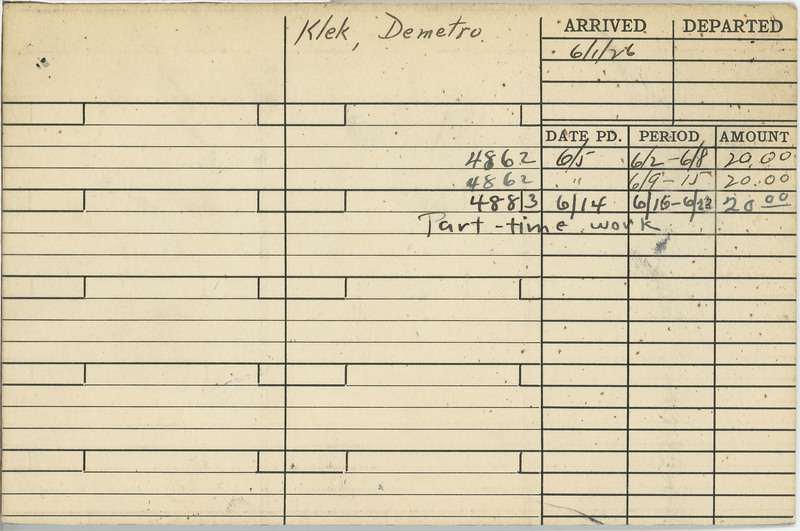 Klek, Demetro.
ARRIVED DEPARTED
6/1/26
DATE PD. PERIOD AMOUNT
4862 6/5 6/2-6/8 20.00
4862 " 6/9-15 20.00
4883 6/14 6/16-6/22 20 00
Part-time work